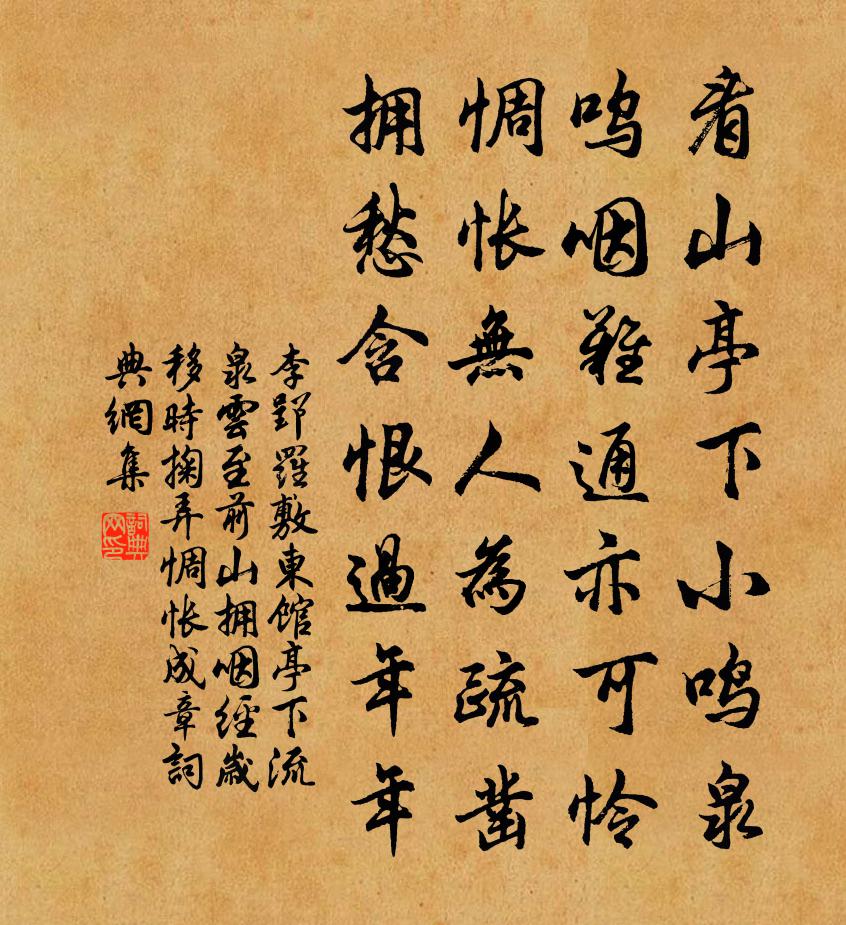 看山亭下小鳴泉
嗚咽難通亦可憐
惆悵無人為疏鑿
擁愁含恨過年年
李郢羅敷東館亭下流
泉雲至前山擁咽經歲
移時掬弄惆悵成章詞
典網集
詞典
網印